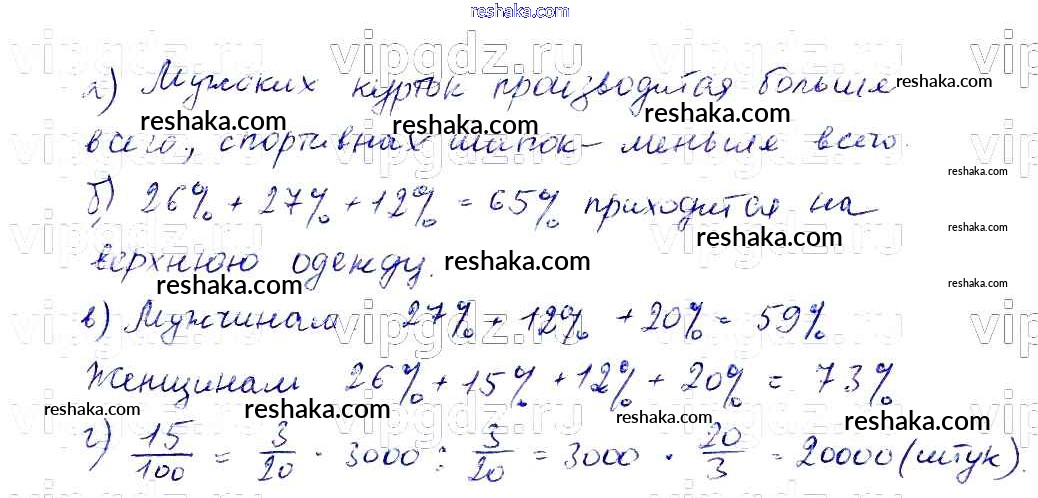 reshaka.com
а) Мужских курток производится больше reshaka.com
reshaka.com reshaka.com reshaka.com
всего, спортивных шапок - меньше всего.
reshaka.com
б) 26% + 27% + 12% = 65% приходится на
reshaka.com reshaka.com
верхнюю одежду. reshaka.com
reshaka.com reshaka.com
в) Мужчинам 27% + 12% + 20% = 59%
reshaka.com reshaka.com
Женщинам 26% + 15% + 12% + 20% = 73%
reshaka.com reshaka.com reshaka.com reshaka.com
г) 15/100 = 3/20 · 3000 : 3/20 = 3000 · 20/3 = 20000 (штук).